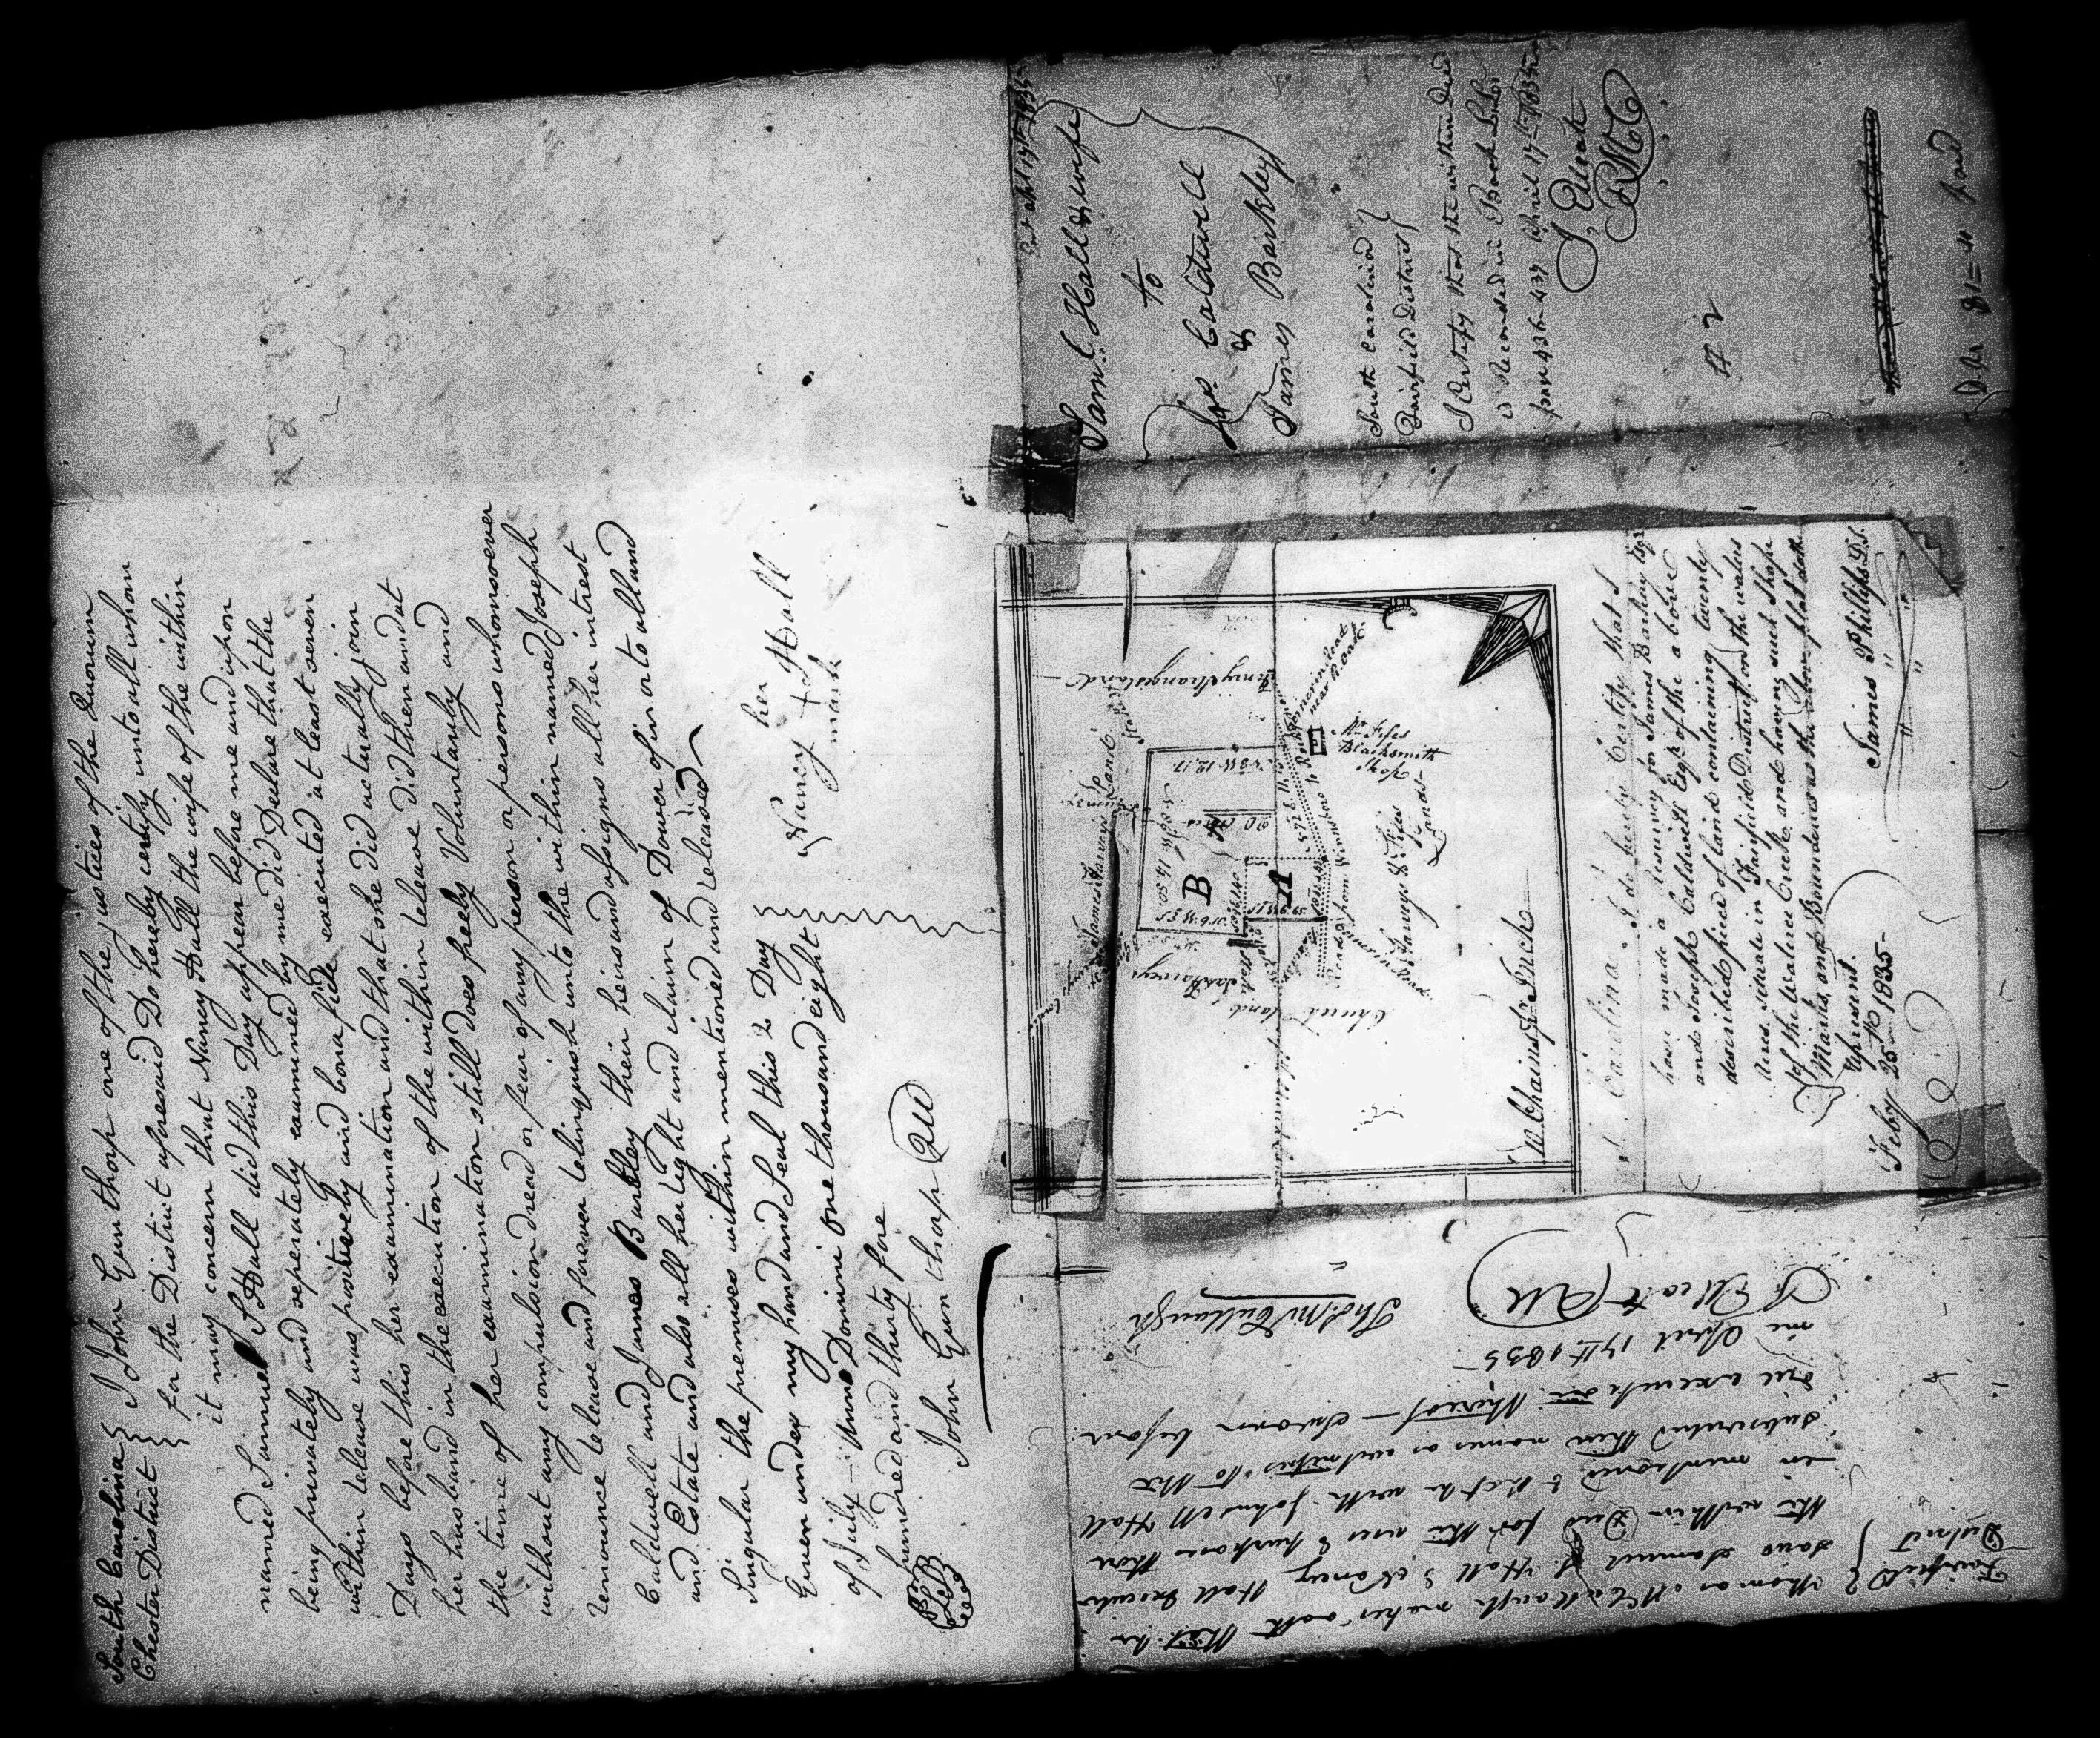 South Carolina
Chester District
I John Gunthorp one of the justices of the Quorum
for the District aforesaid Do hereby certify unto all whom
it may concern that Nancy Hall the wife of the within
named Samuel S Hall did this Day appear before me and upon
being privately and seperately examined by me did Declare that the
within release was positively and bona fide executed at least seven
Days before this her examination and that she did actually join
her husband in the execution of the within release did then and at
the time of her examination still does freely Voluntarily and
without any compulsion dread or fear of any person or persons whomsoever
renounce release and forever relinquish unto the within named Joseph
Caldwell and James Barkley their heirs and assigns all her intrest
and Estate and also all her right and claim of Dower of in or to all and
Singular the premises within mentioned and released
Given under my hand and Seal this 2 Day
of July Anno Domini one thousand eight
hundred and thirty five
John Gunthorp QU
her
Nancy + Hall
mark
Saml. S Hall & wife
to
Jos. Caldwell
&
James Barkley
South Carolina
Fairfield District
I Certify that the within Deed
is Recorded in Book L.L.
page 436-437 April 17th 1835
RMC
paid
B
A
20 Acres
Wm Fifes
Blacksmith
Shop
Church land
10 Chains Pr Inch
S. Carolina. I do hereby Certify that I
have made a Resurvey for James Barkley Esqr
and Joseph Caldwell Esqr of the above
described piece of land containing twenty
Acres situate in Fairfield District on the waters
of the Wateree Creek and having such shape
Marks and Boundaries as the above plat doth
represent.
Feby 25th 1835
James Phillips D.S.
Fairfield
District
Thomas McCullough makes oath that he
saw Samuel S. Hall & Nancy Hall execute
the within Deed for the uses & purposes there
in mentioned & that he with Johnson Hall
subscribed their names as witnesses to the
due execution thereof - Sworn before
me April 17th 1835
Thos. McCullough